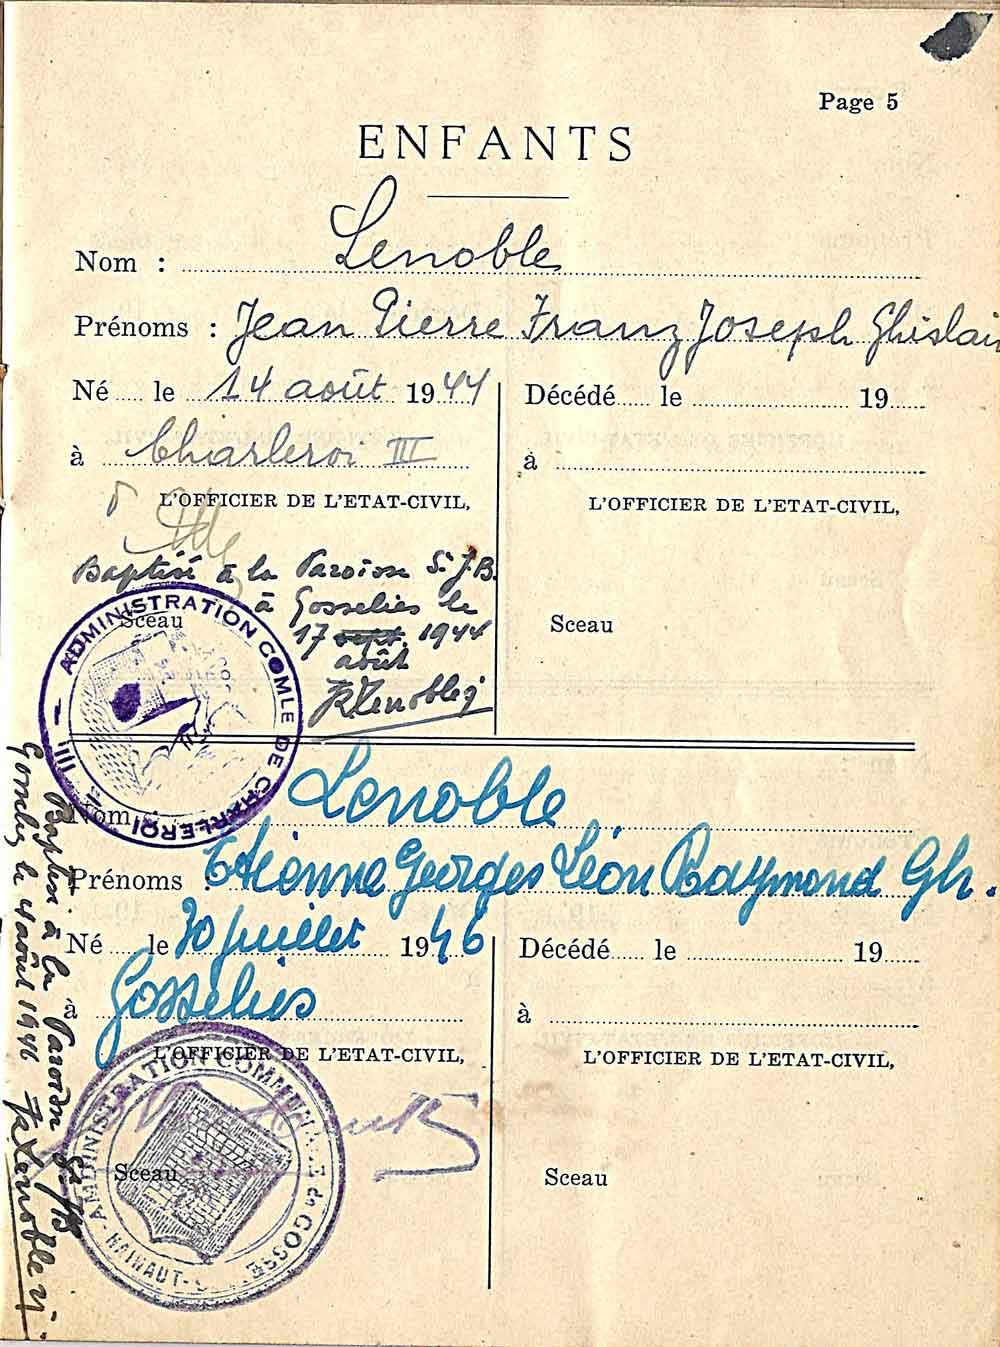 Page 5
ENFANTS
Nom : Lenoble
Prénoms : Jean Pierre Franz Joseph Ghislain
Né le 14 août 1944
à Charleroi III
L'OFFICIER DE L'ETAT-CIVIL,
Décédé le 19
à
L'OFFICIER DE L'ETAT-CIVIL,
Baptisé à la Paroisse S. J.B.
à Gosselies le
17 sept. 1944
août
Sceau
ADMINISTRATION COMLE DE CHARLEROI III
Sceau
Nom : Lenoble
Prénoms : Etienne Georges Léon Raymond Gh.
Né le 30 juillet 1946
à Gosselies
L'OFFICIER DE L'ETAT-CIVIL,
Décédé le 19
à
L'OFFICIER DE L'ETAT-CIVIL,
Sceau
ADMINISTRATION COMMUNALE de GOSSE
HAINAUT
Sceau
Baptisé à la Paroisse St JB
Gosselies le août 1946